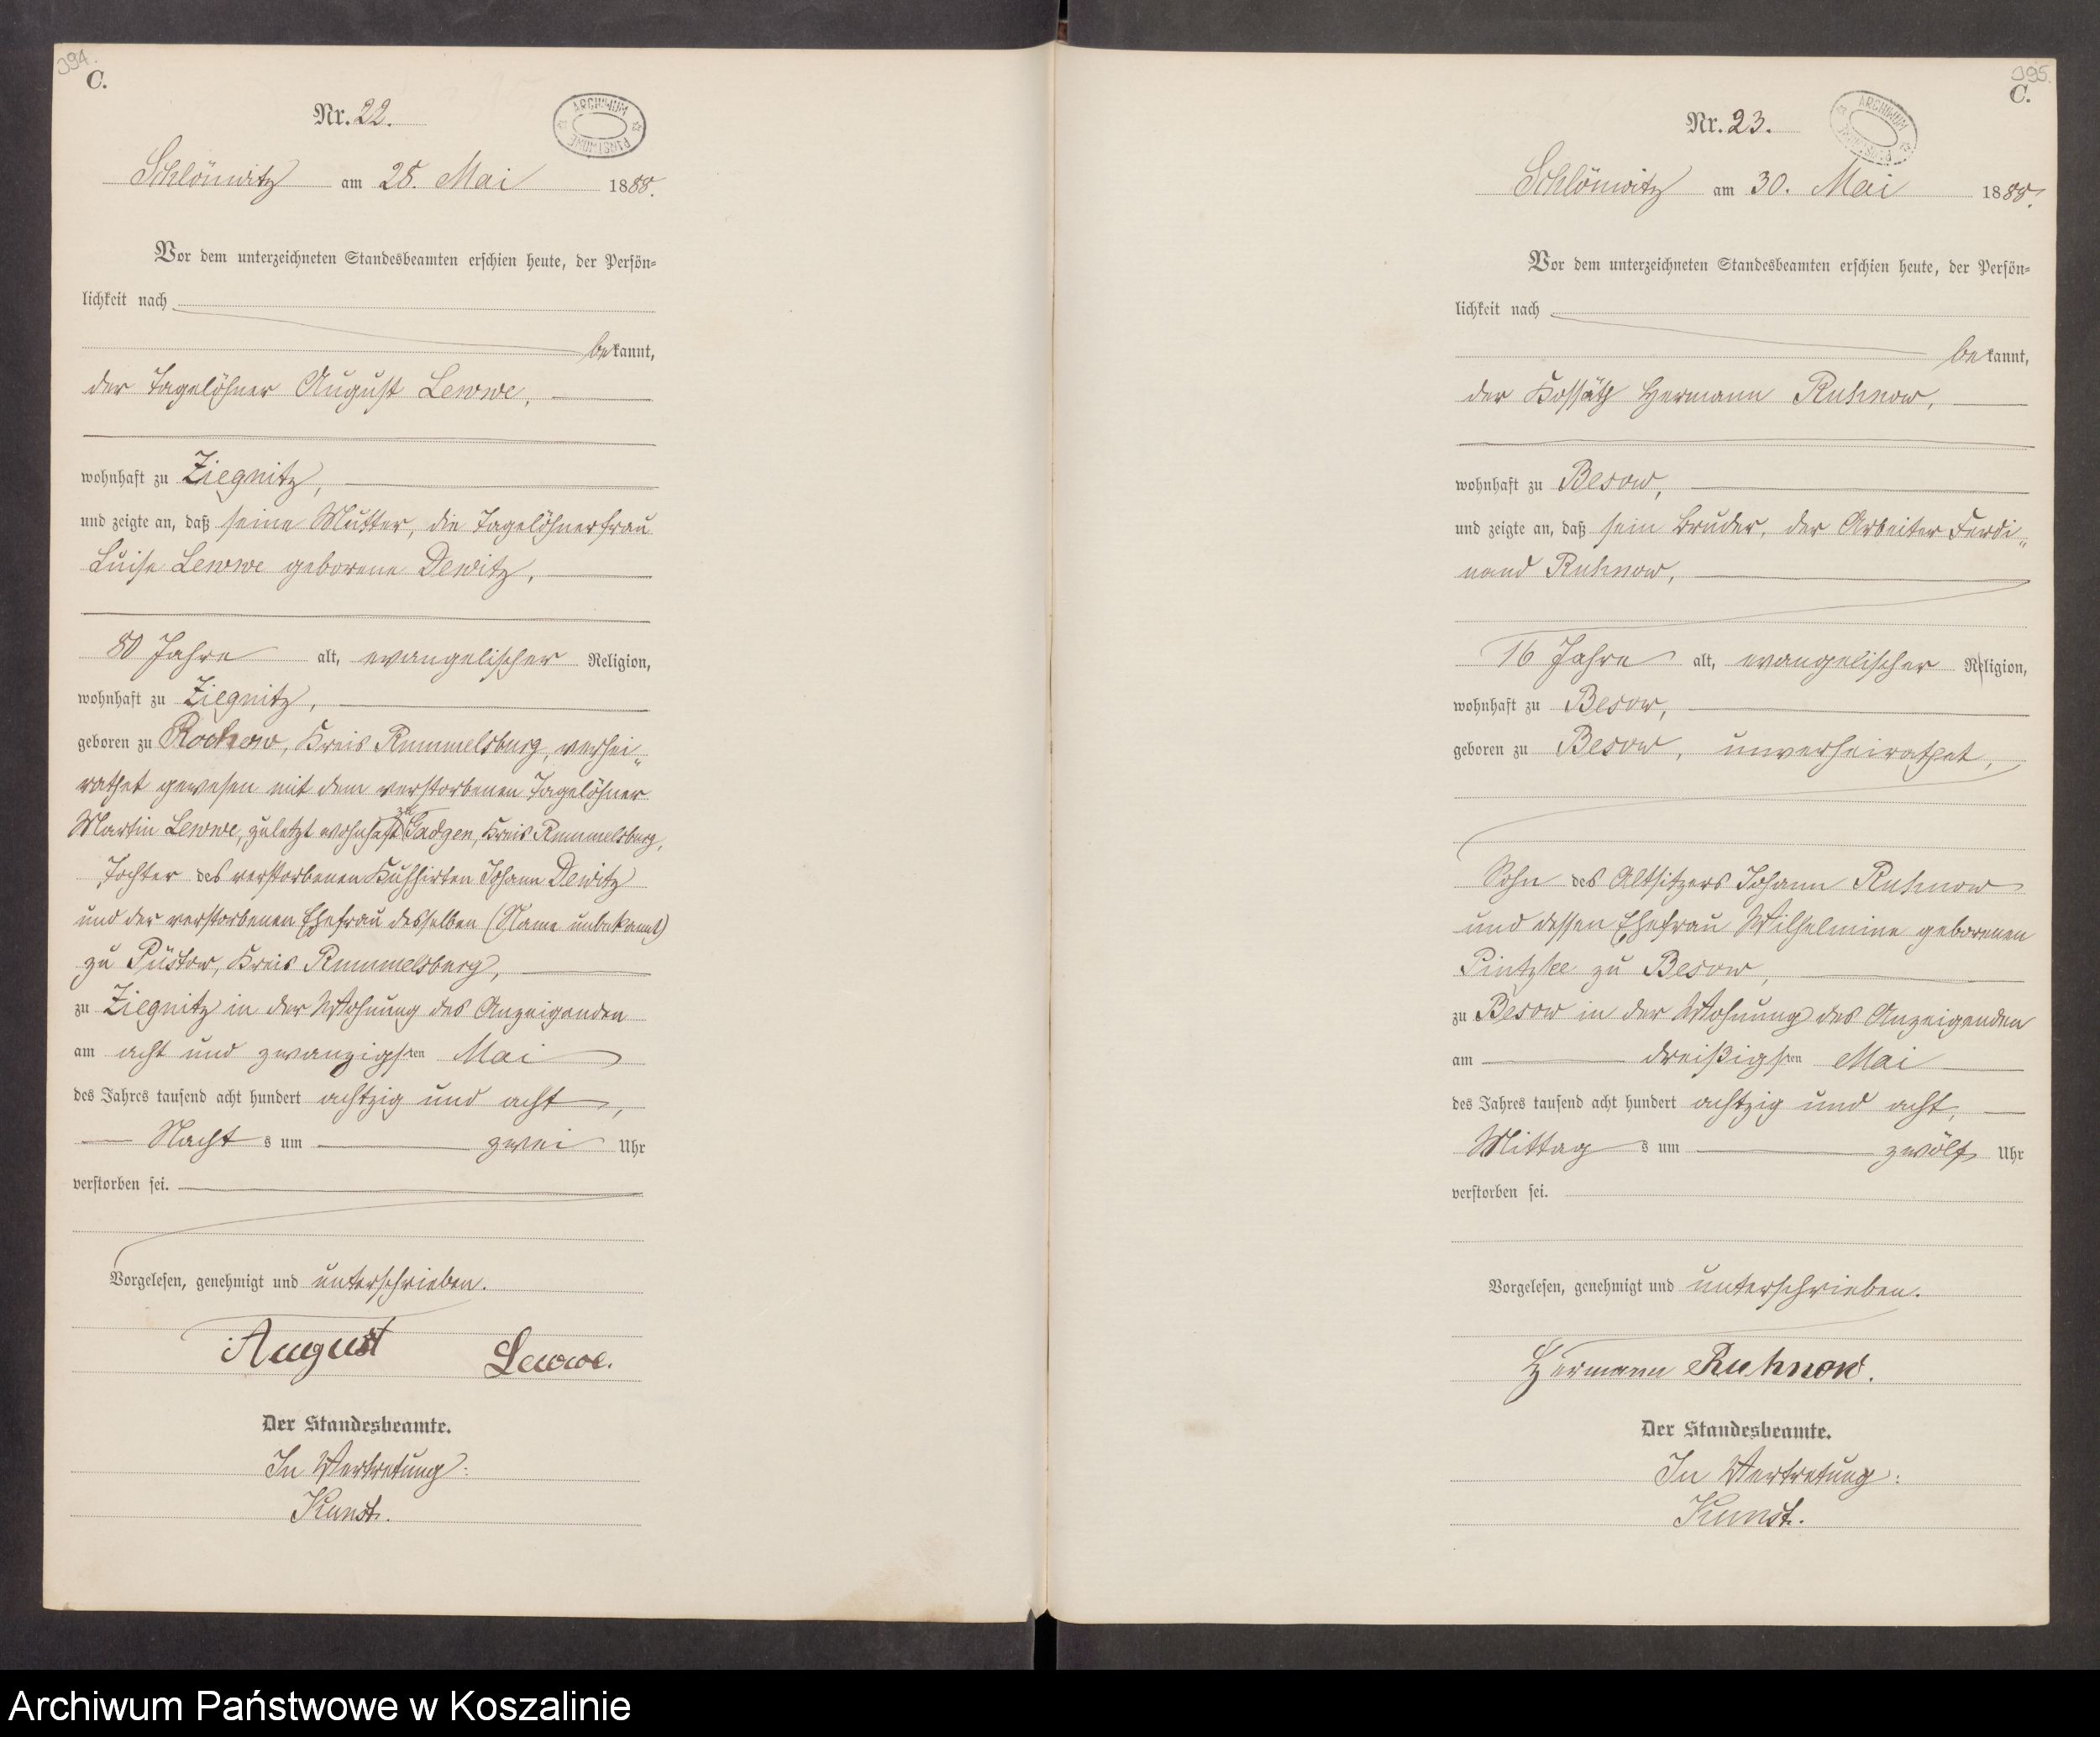 394.
C.
Nr. 22.
ARCHIWUM PAŃSTWOWE
Schlönwitz am 28. Mai 1888.
Vor dem unterzeichneten Standesbeamten erschien heute, der Persön-
lichkeit nach
bekannt,
der Tagelöhner August Lewwe,
wohnhaft zu Ziegnitz,
und zeigte an, daß seine Mutter, die Tagelöhnerfrau
Luise Lewwe geborene Dewitz,
80 Jahre alt, evangelischer Religion,
wohnhaft zu Ziegnitz,
geboren zu Rochow, Kreis Rummelsburg, verhei-
rathet gewesen mit dem verstorbenen Tagelöhner
Martin Lewwe, zuletzt wohnhaft zu Gadgen, Kreis Rummelsburg,
Tochter des verstorbenen Kuhhirten Johann Dewitz
und der verstorbenen Ehefrau desselben (Name unbekannt)
zu Püstow, Kreis Rummelsburg,
zu Ziegnitz in der Wohnung des Anzeigenden
am acht und zwanzigsten Mai
des Jahres tausend acht hundert achtzig und acht,
Nachts um zwei Uhr
verstorben sei.
Vorgelesen, genehmigt und unterschrieben.
August Lewwe.
Der Standesbeamte.
In Vertretung:
Kunst.
395.
C.
Nr. 23.
ARCHIWUM PAŃSTWOWE
Schlönwitz am 30. Mai 1888.
Vor dem unterzeichneten Standesbeamten erschien heute, der Persön-
lichkeit nach
bekannt,
der Kossäth Hermann Ruhnow,
wohnhaft zu Besow,
und zeigte an, daß sein Bruder, der Arbeiter Ferdi-
nand Ruhnow,
16 Jahre alt, evangelischer Religion,
wohnhaft zu Besow,
geboren zu Besow, unverheirathet,
Sohn des Altsitzers Johann Ruhnow
und dessen Ehefrau Wilhelmine geborenen
zu Besow,
zu Besow in der Wohnung des Anzeigenden
am dreißigsten Mai
des Jahres tausend acht hundert achtzig und acht,
Mittags um zwölf Uhr
verstorben sei.
Vorgelesen, genehmigt und unterschrieben.
Hermann Ruhnow.
Der Standesbeamte.
In Vertretung:
Kunst.
Archiwum Państwowe w Koszalinie